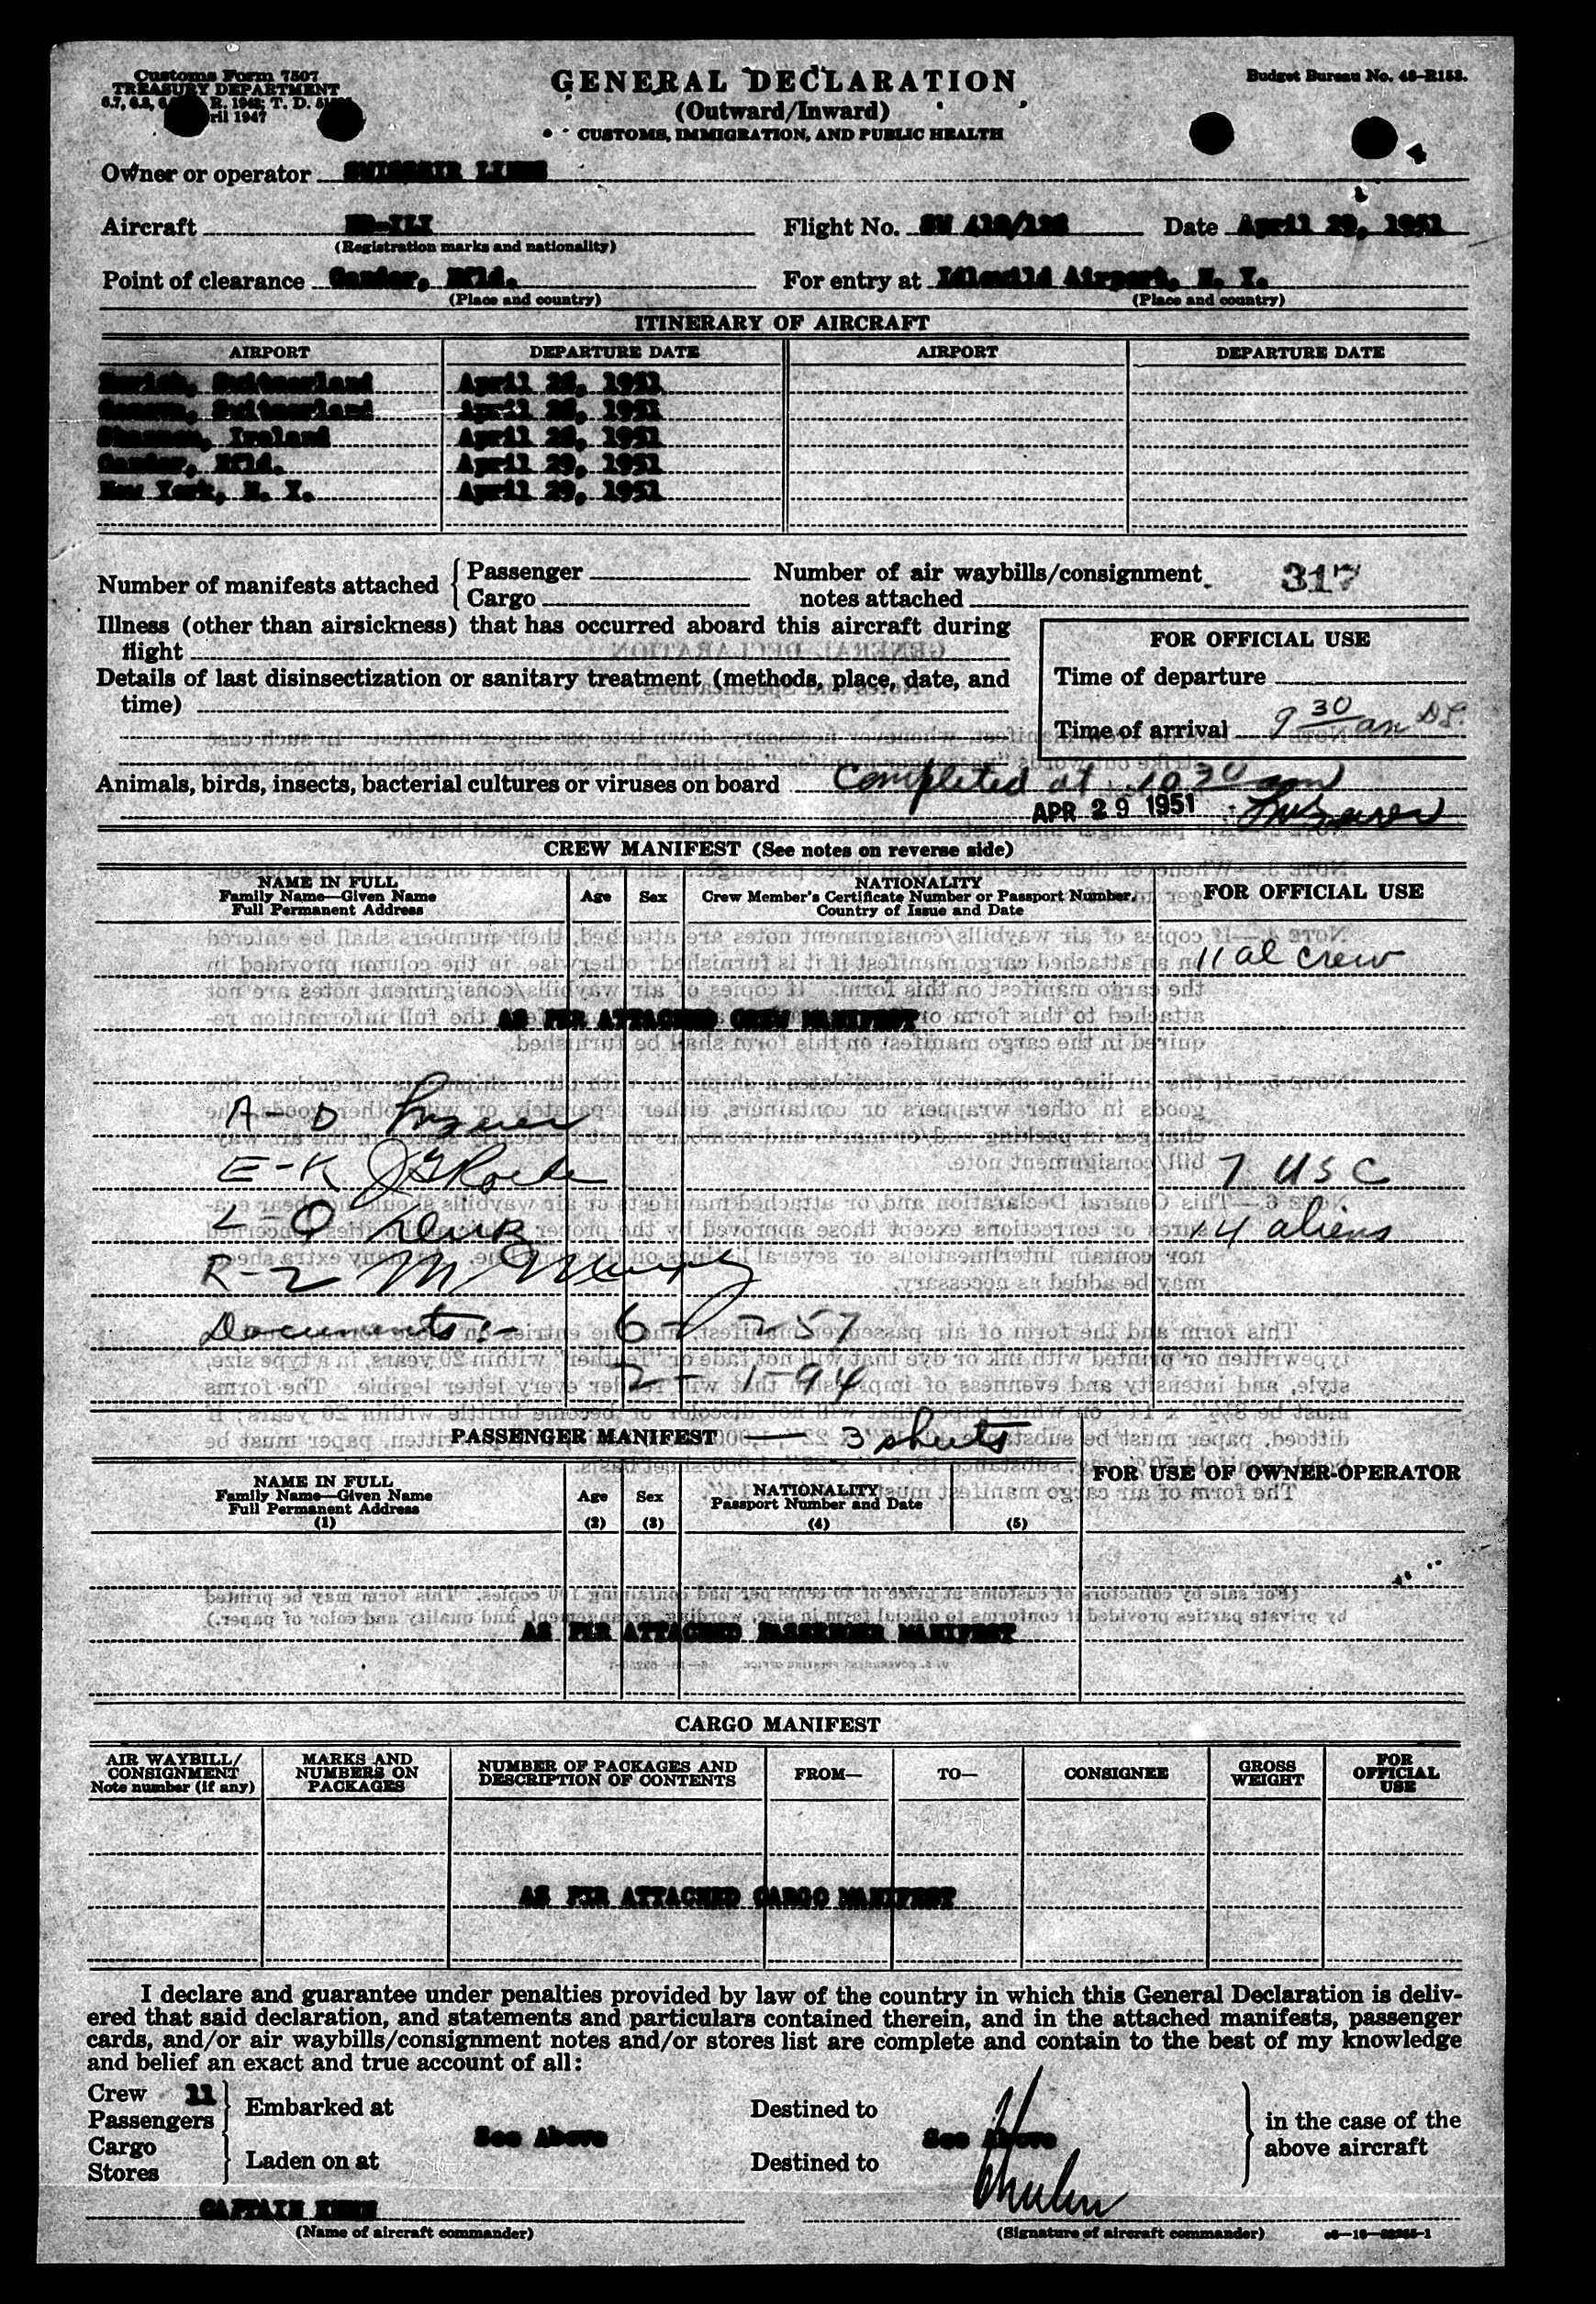 Customs Form 7507
TREASURY DEPARTMENT
GENERAL DECLARATION
(Outward/Inward)
CUSTOMS, IMMIGRATION, AND PUBLIC HEALTH
Budget Bureau No. 48-R153.
Owner or operator SWISSAIR LINES
Aircraft HB-ILI
(Registration marks and nationality)
Flight No. Date April 29, 1951
Point of clearance Gander, Nfld.
(Place and country)
For entry at Idlewild Airport, N. Y.
(Place and country)
ITINERARY OF AIRCRAFT
AIRPORT DEPARTURE DATE AIRPORT DEPARTURE DATE
Zurich, Switzerland April 28, 1951
Geneva, Switzerland April 28, 1951
Shannon, Ireland April 28, 1951
Gander, Nfld. April 29, 1951
New York, N. Y. April 29, 1951
Number of manifests attached { Passenger
Cargo
Number of air waybills/consignment
notes attached
317
Illness (other than airsickness) that has occurred aboard this aircraft during
flight
Details of last disinsectization or sanitary treatment (methods, place, date, and
time)
FOR OFFICIAL USE
Time of departure
Time of arrival 9 30 am
Animals, birds, insects, bacterial cultures or viruses on board Completed at 10 30 am
APR 29 1951
CREW MANIFEST (See notes on reverse side)
NAME IN FULL
Family Name—Given Name
Full Permanent Address
Age
Sex
NATIONALITY
Crew Member's Certificate Number or Passport Number,
Country of Issue and Date
FOR OFFICIAL USE
11 al crew
AS PER ATTACHED CREW MANIFEST
A-D
E-K
7 USC
L-Q
14 aliens
R-Z
Documents:- 6- 257
2- 1-94
PASSENGER MANIFEST — 3 sheets
NAME IN FULL
Family Name—Given Name
Full Permanent Address
(1)
Age
(2)
Sex
(3)
NATIONALITY
Passport Number and Date
(4) (5)
FOR USE OF OWNER-OPERATOR
AS PER ATTACHED PASSENGER MANIFEST
CARGO MANIFEST
AIR WAYBILL/
CONSIGNMENT
Note number (if any)
MARKS AND
NUMBERS ON
PACKAGES
NUMBER OF PACKAGES AND
DESCRIPTION OF CONTENTS
FROM—
TO—
CONSIGNEE
GROSS
WEIGHT
FOR
OFFICIAL
USE
AS PER ATTACHED CARGO MANIFEST
I declare and guarantee under penalties provided by law of the country in which this General Declaration is deliv-
ered that said declaration, and statements and particulars contained therein, and in the attached manifests, passenger
cards, and/or air waybills/consignment notes and/or stores list are complete and contain to the best of my knowledge
and belief an exact and true account of all:
Crew 11
Passengers
Embarked at
Destined to
in the case of the
above aircraft
See Above
See Above
Cargo
Stores
Laden on at
Destined to
CAPTAIN
(Name of aircraft commander)
(Signature of aircraft commander)